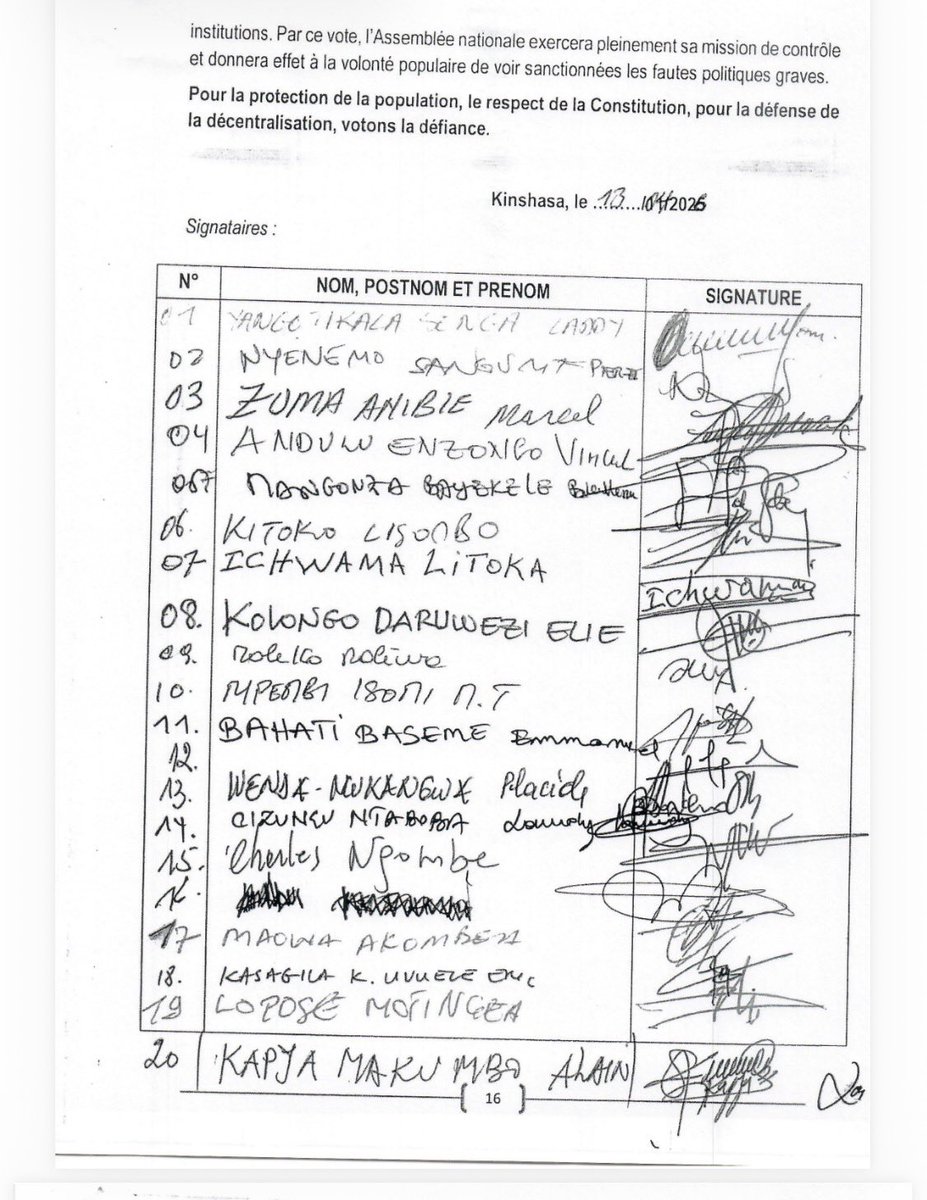 institutions. Par ce vote, l'Assemblée nationale exercera pleinement sa mission de contrôle
et donnera effet à la volonté populaire de voir sanctionnées les fautes politiques graves.
Pour la protection de la population, le respect de la Constitution, pour la défense de
la décentralisation, votons la défiance.
Kinshasa, le ...13.../04/2026
Signataires :
N° NOM, POSTNOM ET PRENOM SIGNATURE
01 YANGOTIKALA SENGA LADDY
02 NYENEMO SANGUMA
03 ZUMA ANIBIE Marcel
04 ANDULU ENZONGO
05 MANGONZA BAYEKELE
06. KITOKO LISOMBO
07 ICHWAMA LITOKA Ichwama
08. KOLONGO DARUWEZI ELIE
09.
10. MPEMBI ISOMI N.T
11. BAHATI BASEME Emmanuel
12.
13. WENDA-MUKANGWA Placide
14. CIRUNGU NTABOBA
15. Charles Ngombe
16.
17 MAOWA AKOMBEZI
18. KASAGILA K. UVUELE
19 LOPOSE MOTINGEA
20 KAPJA MAKUMBO ALAIN
16